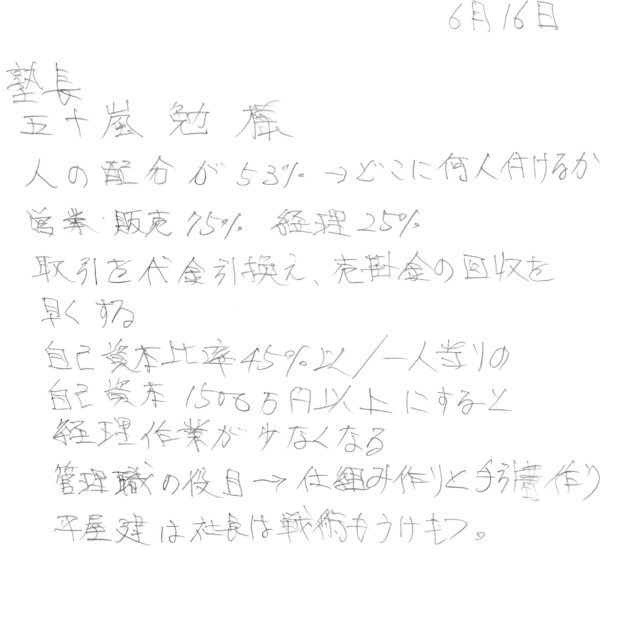 6月16日
塾長
五十嵐 勉 様
人の配分が 53% → どこに何人付けるか
営業・販売 75% 経理 25%
取引を代金引換え、売掛金の回収を
早くする
自己資本比率 45%以/一人当りの
自己資本 1500万円以上にすると
経理作業が少なくなる
管理職の役目 → 仕組み作りと手引書作り
平屋建は社長は戦術もうけもつ。